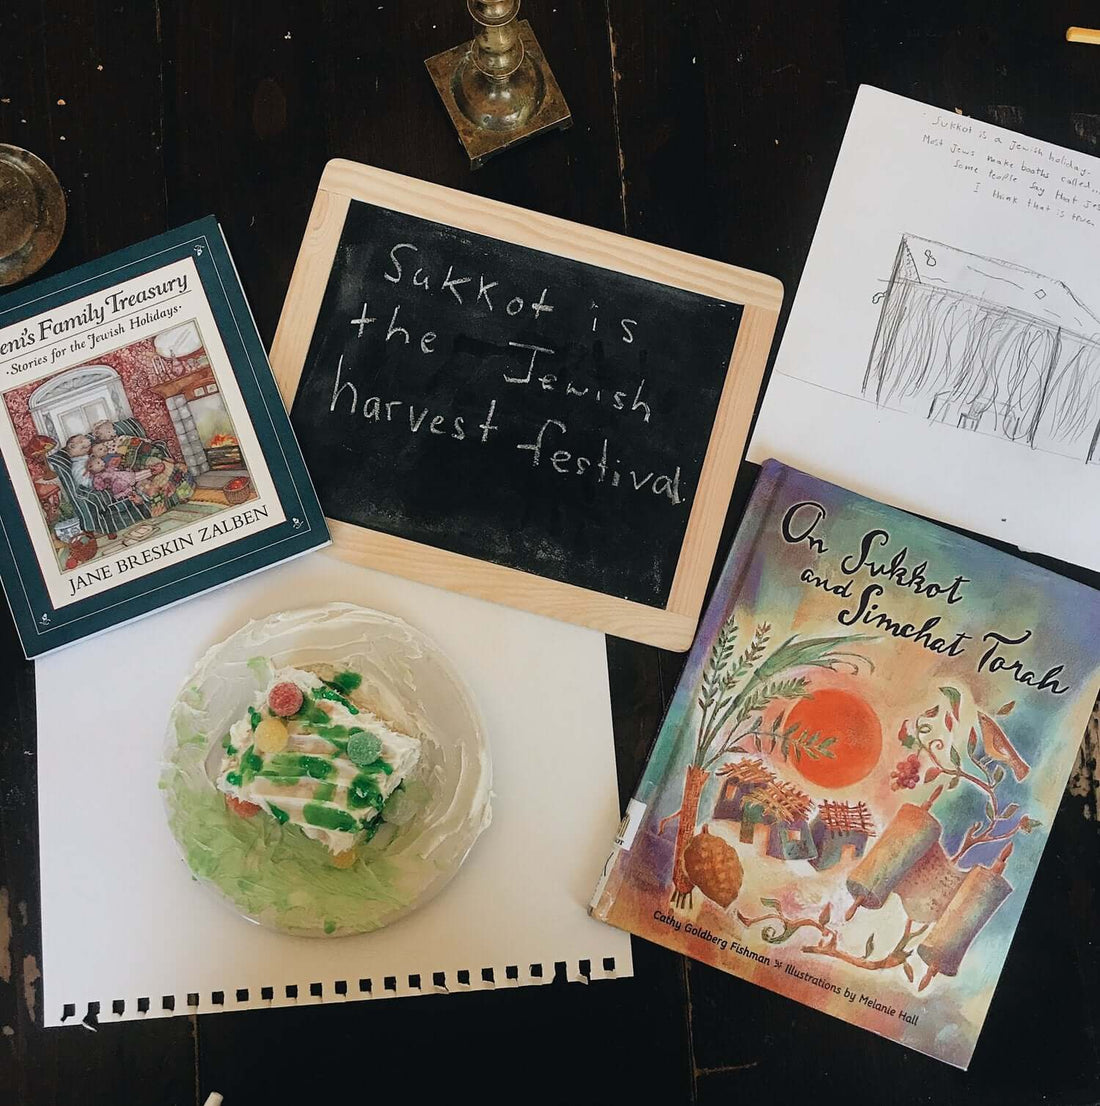 Sukkot is a Jewish holiday.
Most Jews make booths called...
Some People say that
I think that is true.
8
eni's Family Treasury
·Stories for the Jewish Holidays·
JANE BRESKIN ZALBEN
Sukkot is
the Jewish
harvest festival.
On Sukkot
and Simchat Torah
Cathy Goldberg Fishman Illustrations by Melanie Hall